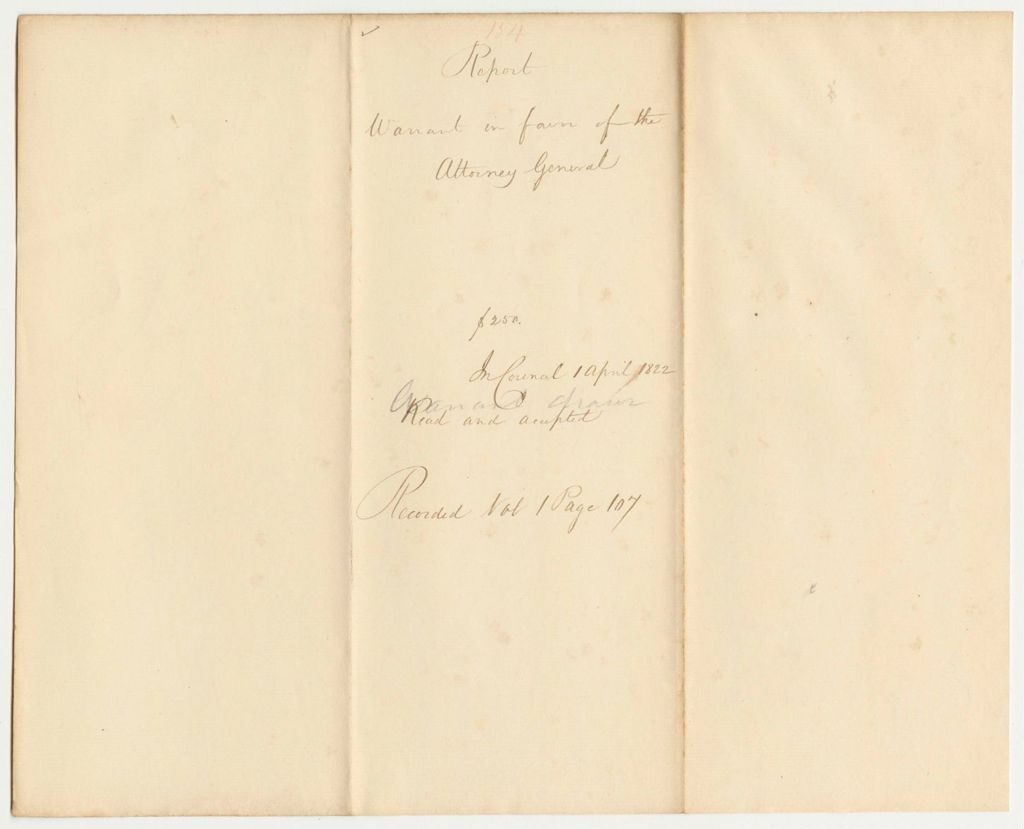 134
Report
Warrant in favor of the
Attorney General
$250.
In Council 1 April 1822
Warrant drawn
Read and accepted
Recorded Vol 1 Page 107